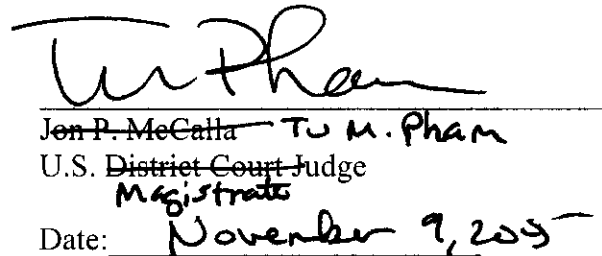 Tu Pham
Jon P. McCalla Tu M. Pham
U.S. District Court Judge
Magistrate
Date: November 9, 2005